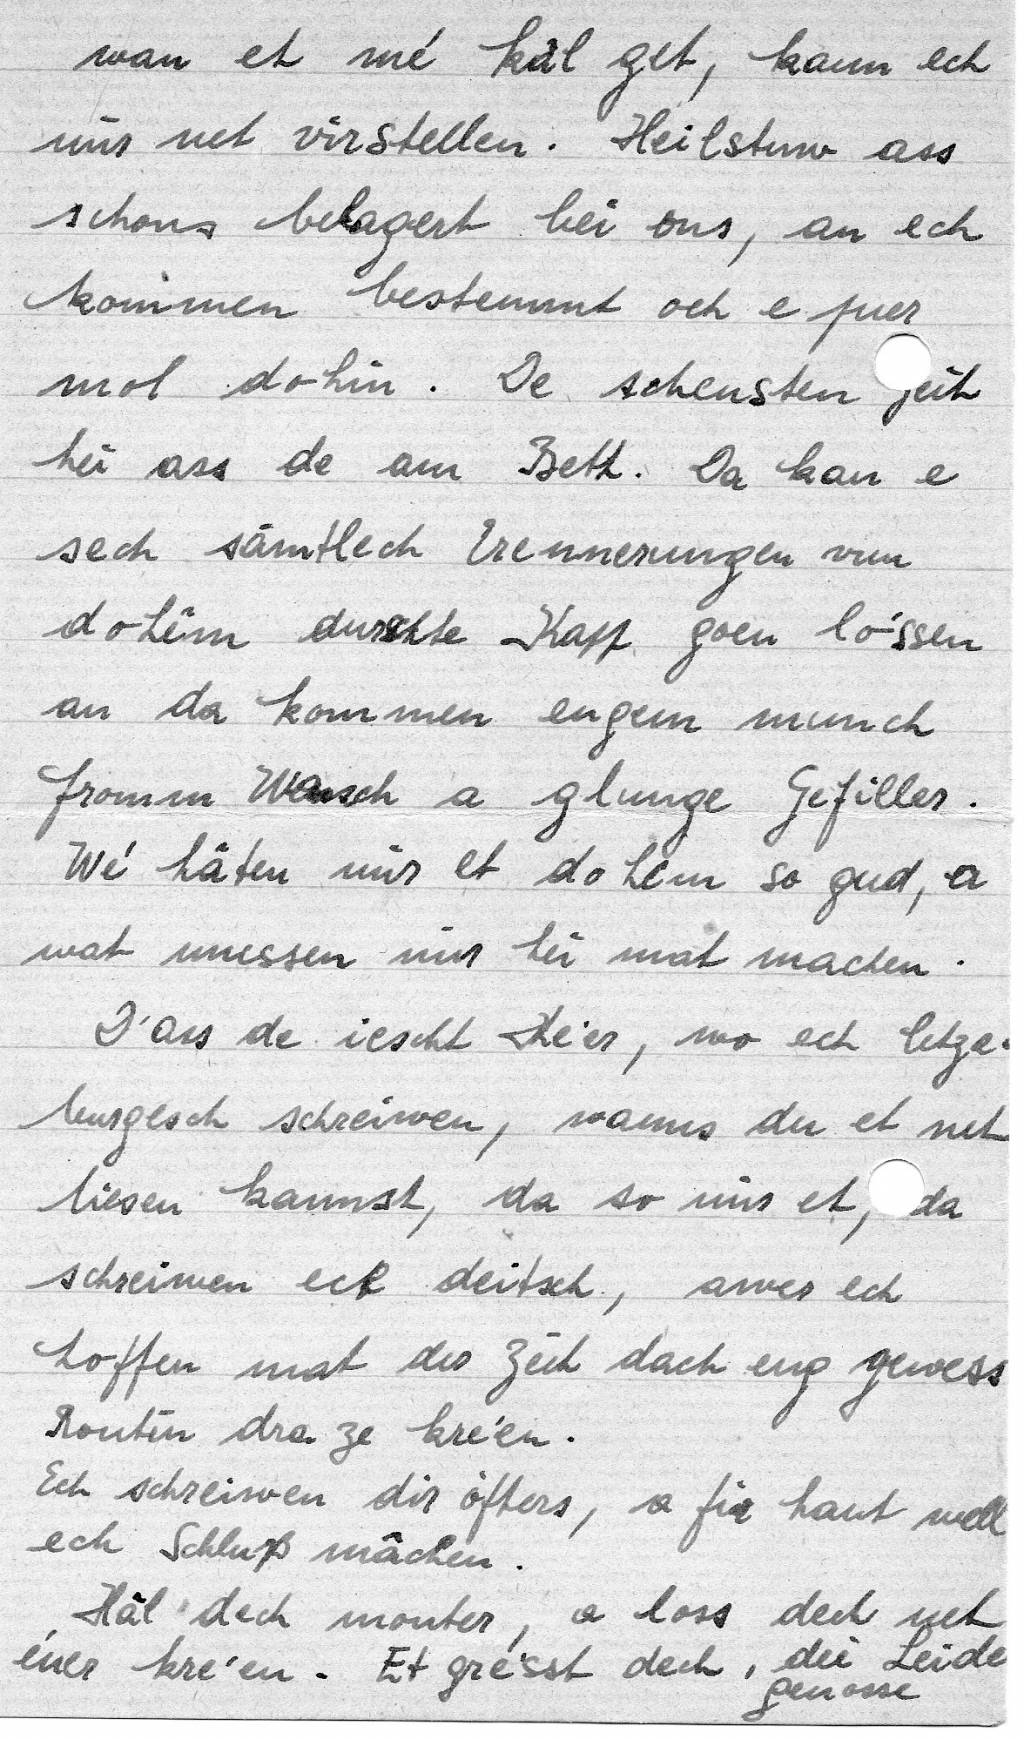 wan et mé käl get, kann ech
mir net virstellen. Heilstuw ass
schons belagert bei ons, an ech
kommen bestemmt och e puer
mol dohin. De schensten Zeit
hei ass de am Bett. Da kan e
sech sämtlech Erennerungen vun
dohém durchte Kapp goen lóssen
an da kommen engem munch
fromm Wensch a glunge Gefiller.
Wé häten mir et dohém so gud, a
wat mussen mir hei mat machen.
D'ass de iescht Ke'er, wo ech letze-
burgesch schreiwen, wanns du et net
liesen kannst, da so mir et, da
schreiwen ech deitsch, awer ech
hoffen mat der Zeit dach eng gewess
Routin dra ze kre'en.
Ech schreiwen dir öfters, a fir haut well
ech Schluß mâchen.
Hâl dech monter, a loss dech net
éner kre'en. Et gre'sst dech, dei Leide
genosse